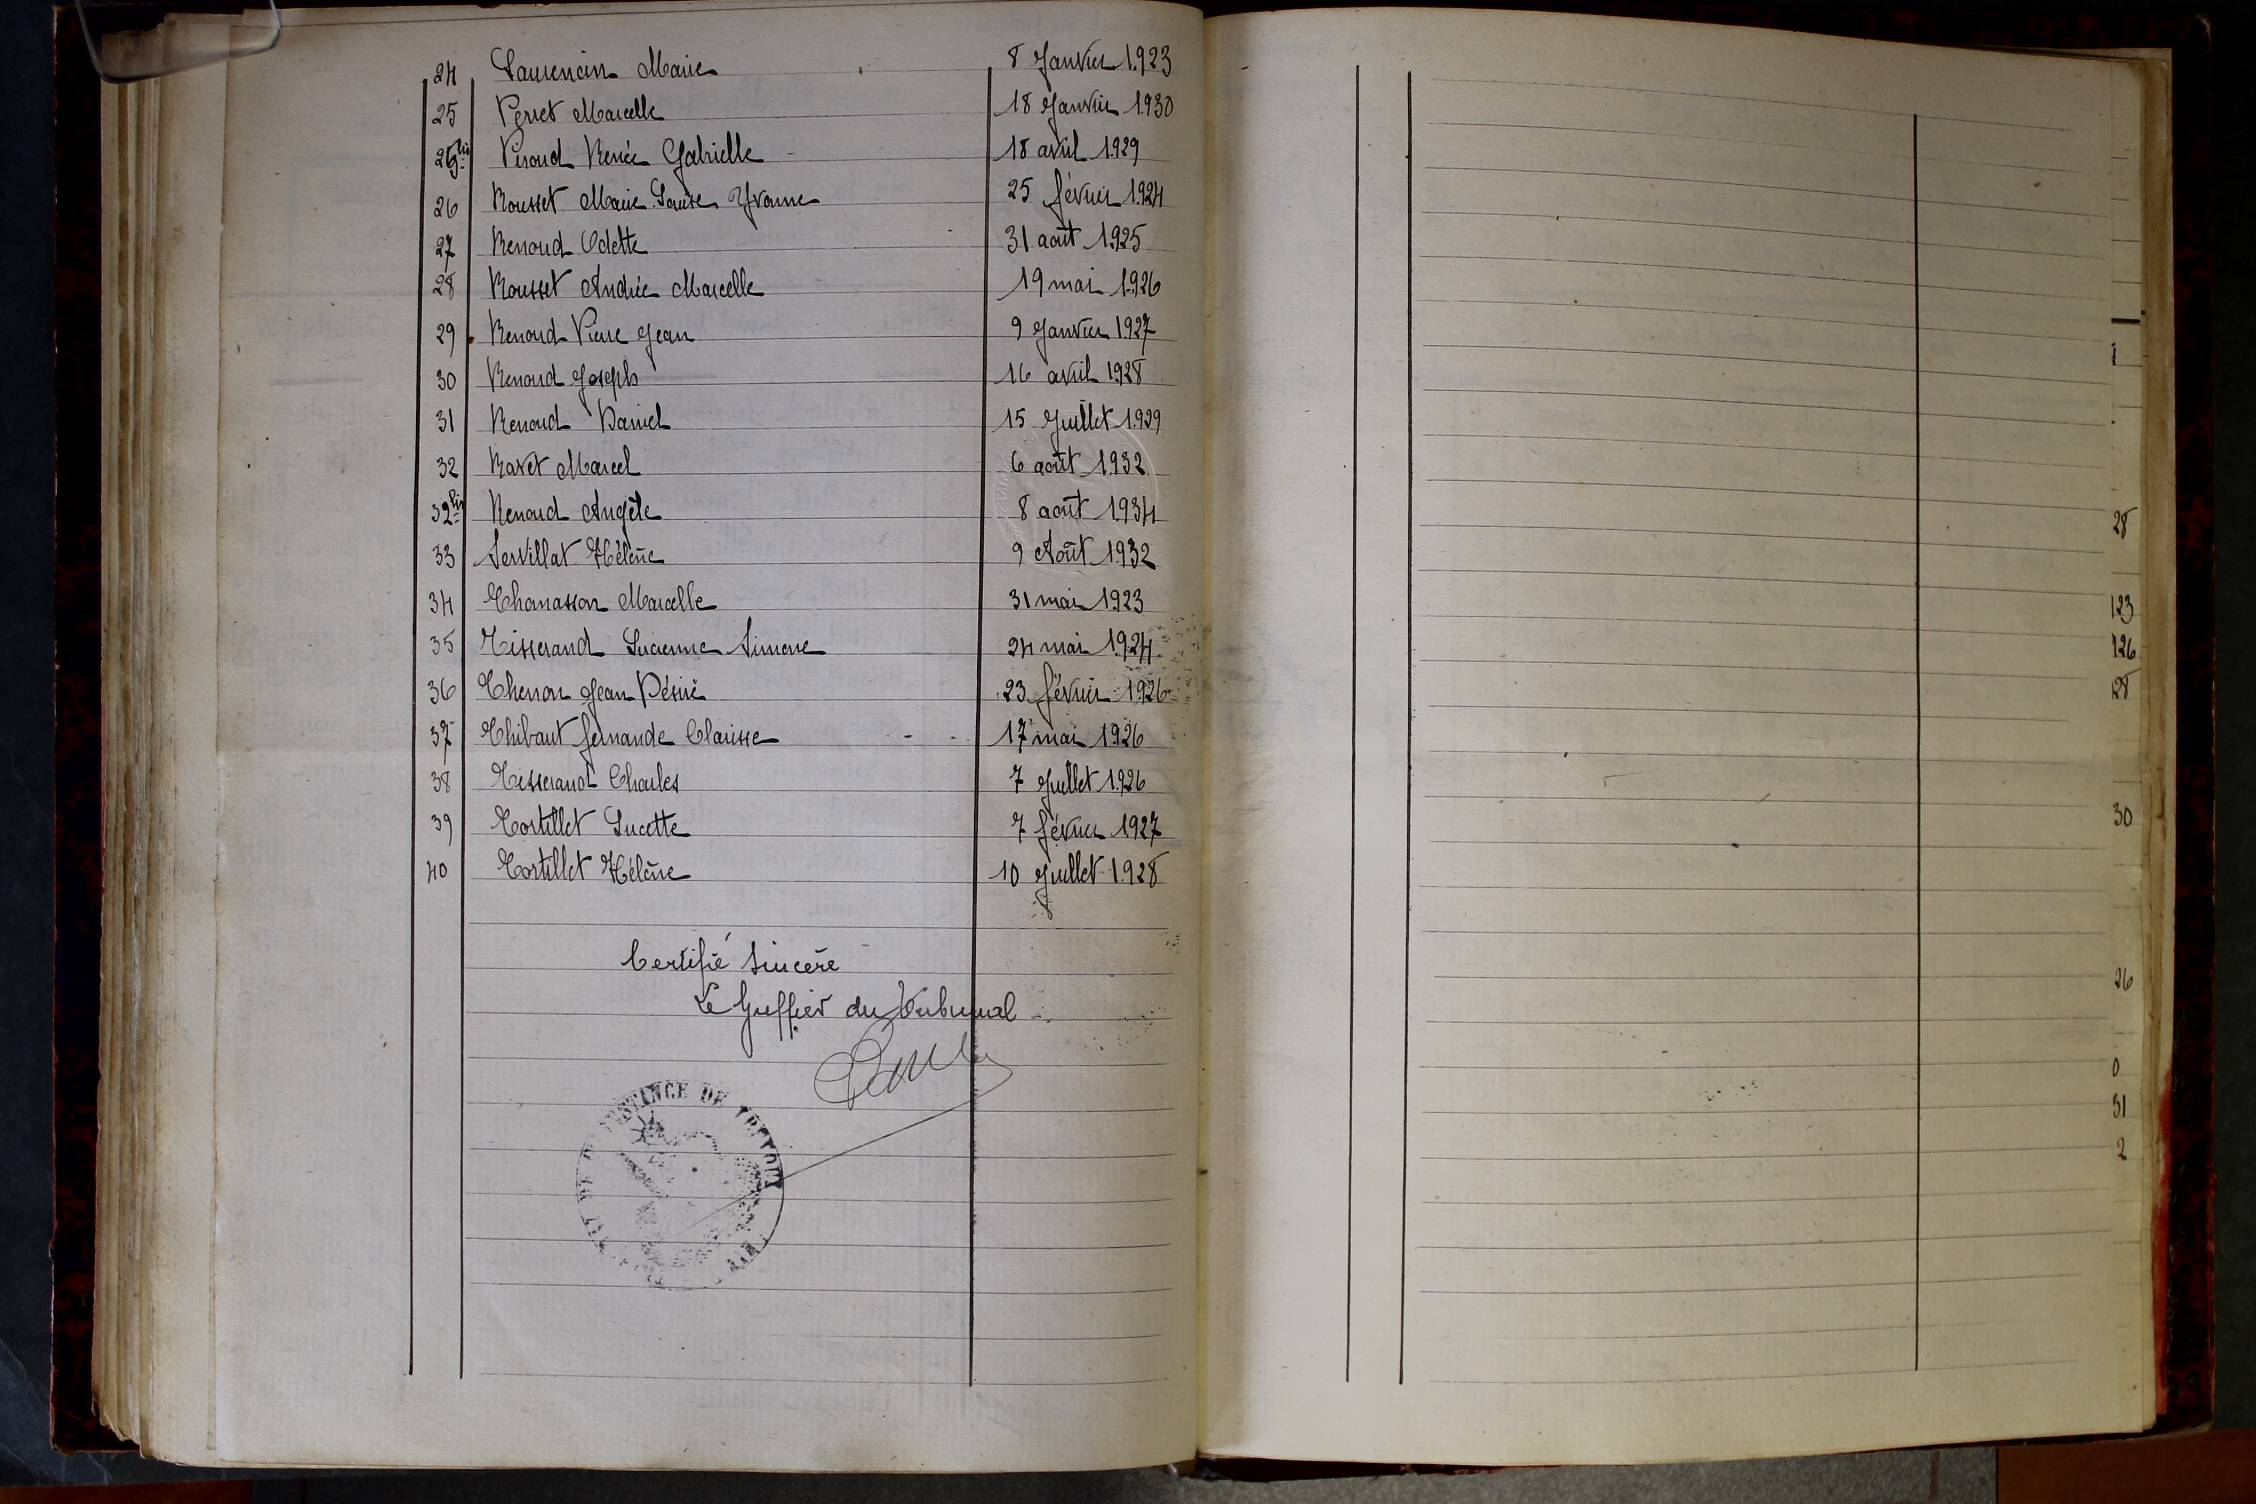 24 Laurencin Marie 8 Janvier 1923
25 Perret Marcelle 18 Janvier 1930
25 bis Peroud Renée Gabrielle 18 avril 1929
26 Rousset Marie Louise Yvonne 25 février 1924
27 Renoud Odette 31 août 1925
28 Rousset Andrée Marcelle 19 mai 1926
29 Renoud Pierre Jean 9 Janvier 1927
30 Renoud Joseph 16 avril 1928
31 Renoud Daniel 15 Juillet 1929
32 Ravet Marcel 6 août 1932
32 bis Renoud Angèle 8 août 1934
33 Servillat Hélène 9 Août 1932
34 Chanasson Marcelle 31 mai 1923
35 Tisserand Lucienne Simone 24 mai 1924
36 Thenon Jean Désiré 23 février 1926
37 Thibaut Fernande Clarisse 17 mai 1926
38 Tisserand Charles 7 Juillet 1926
39 Tortillet Lucette 7 février 1927
40 Tortillet Hélène 10 Juillet 1928
Certifié Sincère
Le Greffier du Tribunal
INSTANCE DE TREVOUX
28
123
126
128
30
26
0
31
2